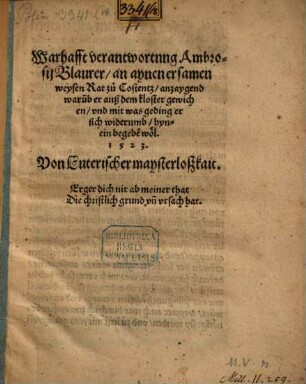 3341/18
Warhafft verantwortung Ambro-
sij Blaurer / an aynen ersamen
weysen Rat zů Costentz / anzaygend
warūb er auß dem kloster gewich
en / vnd mit was geding er
sich widerumb / hyn-
ein begebē wöl.
1523.
Von Luterischer maysterloßkait.
Erger dich nit ab meiner that
Die christlich grund vñ vrsach hat.
BIBLIOTHECA
REGIA
MONACENSIS